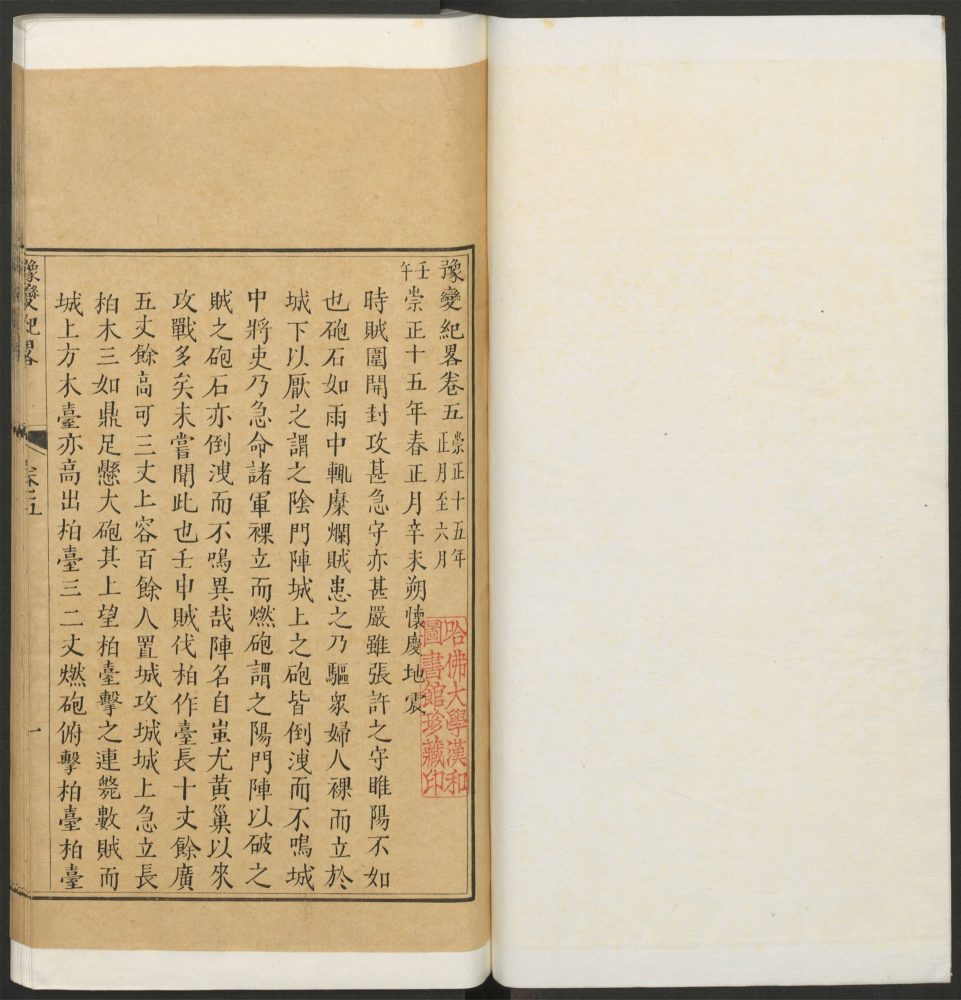 豫變紀畧卷五崇正十五年正月至六月
壬午崇正十五年春正月辛未朔懷慶地震
時賊圍開封攻甚急守亦甚嚴雖張許之守睢陽不如
也砲石如雨中輒糜爛賊患之乃驅衆婦人裸而立於
城下以厭之謂之陰門陣城上之砲皆倒洩而不鳴城
中將吏乃急命諸軍裸立而燃砲謂之陽門陣以破之
賊之砲石亦倒洩而不鳴異哉陣名自蚩尤黃巢以來
攻戰多矣未嘗聞此也壬申賊伐柏作臺長十丈餘廣
五丈餘高可三丈上容百餘人置城攻城城上急立長
柏木三如鼎足懸大砲其上望柏臺擊之連斃數賊而
城上方木臺亦高出柏臺三二丈燃砲俯擊柏臺柏臺
豫變紀畧
卷五
一
哈佛大學漢和
圖書館珍藏印